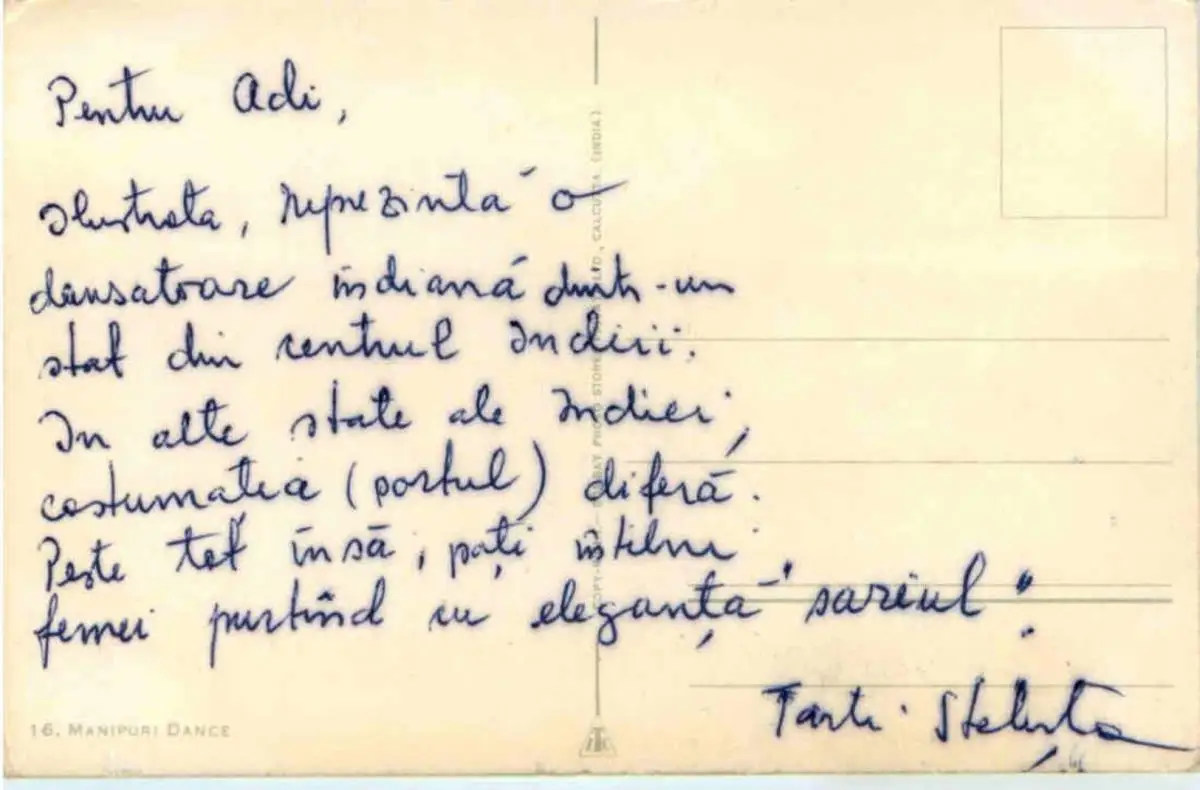 Pentru Adi,
Ilustrata, reprezintă o
dansatoare indiană dintr-un
stat din centrul Indiei.
In alte state ale Indiei,
costumația (portul) diferă.
Peste tot însă, poți întilni
femei purtînd cu eleganță "sariul".
Tanti Steluța
16. MANIPURI DANCE
CALCUTTA (INDIA)